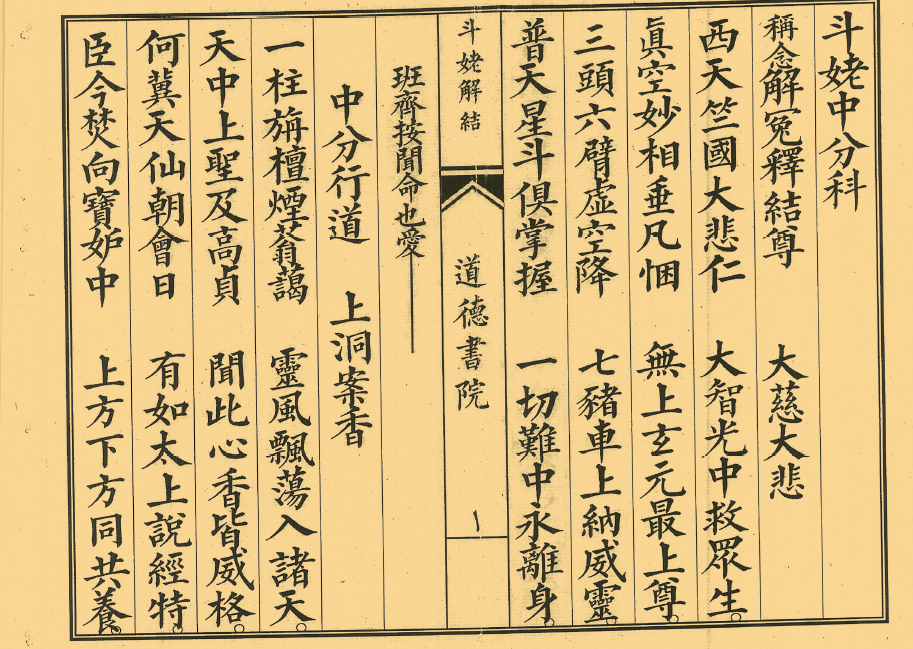 斗姥中分科
稱念解冤釋結尊　大慈大悲
西天竺國大悲仁　大智光中救眾生○
眞空妙相垂凡悃　無上玄元最上尊○
三頭六臂虛空降　七豬車上納威靈○
普天星斗俱掌握　一切難中永離身○
斗姥解結　道德書院　一
班齊按聞命也愛
中分行道　上洞案香
一柱旃檀煙蓊藹　靈風飄蕩入諸天○
天中上聖及高貞　聞此心香皆威格○
何冀天仙朝會日　有如太上說經特○
臣今焚向寶妒中　上方下方同共養○